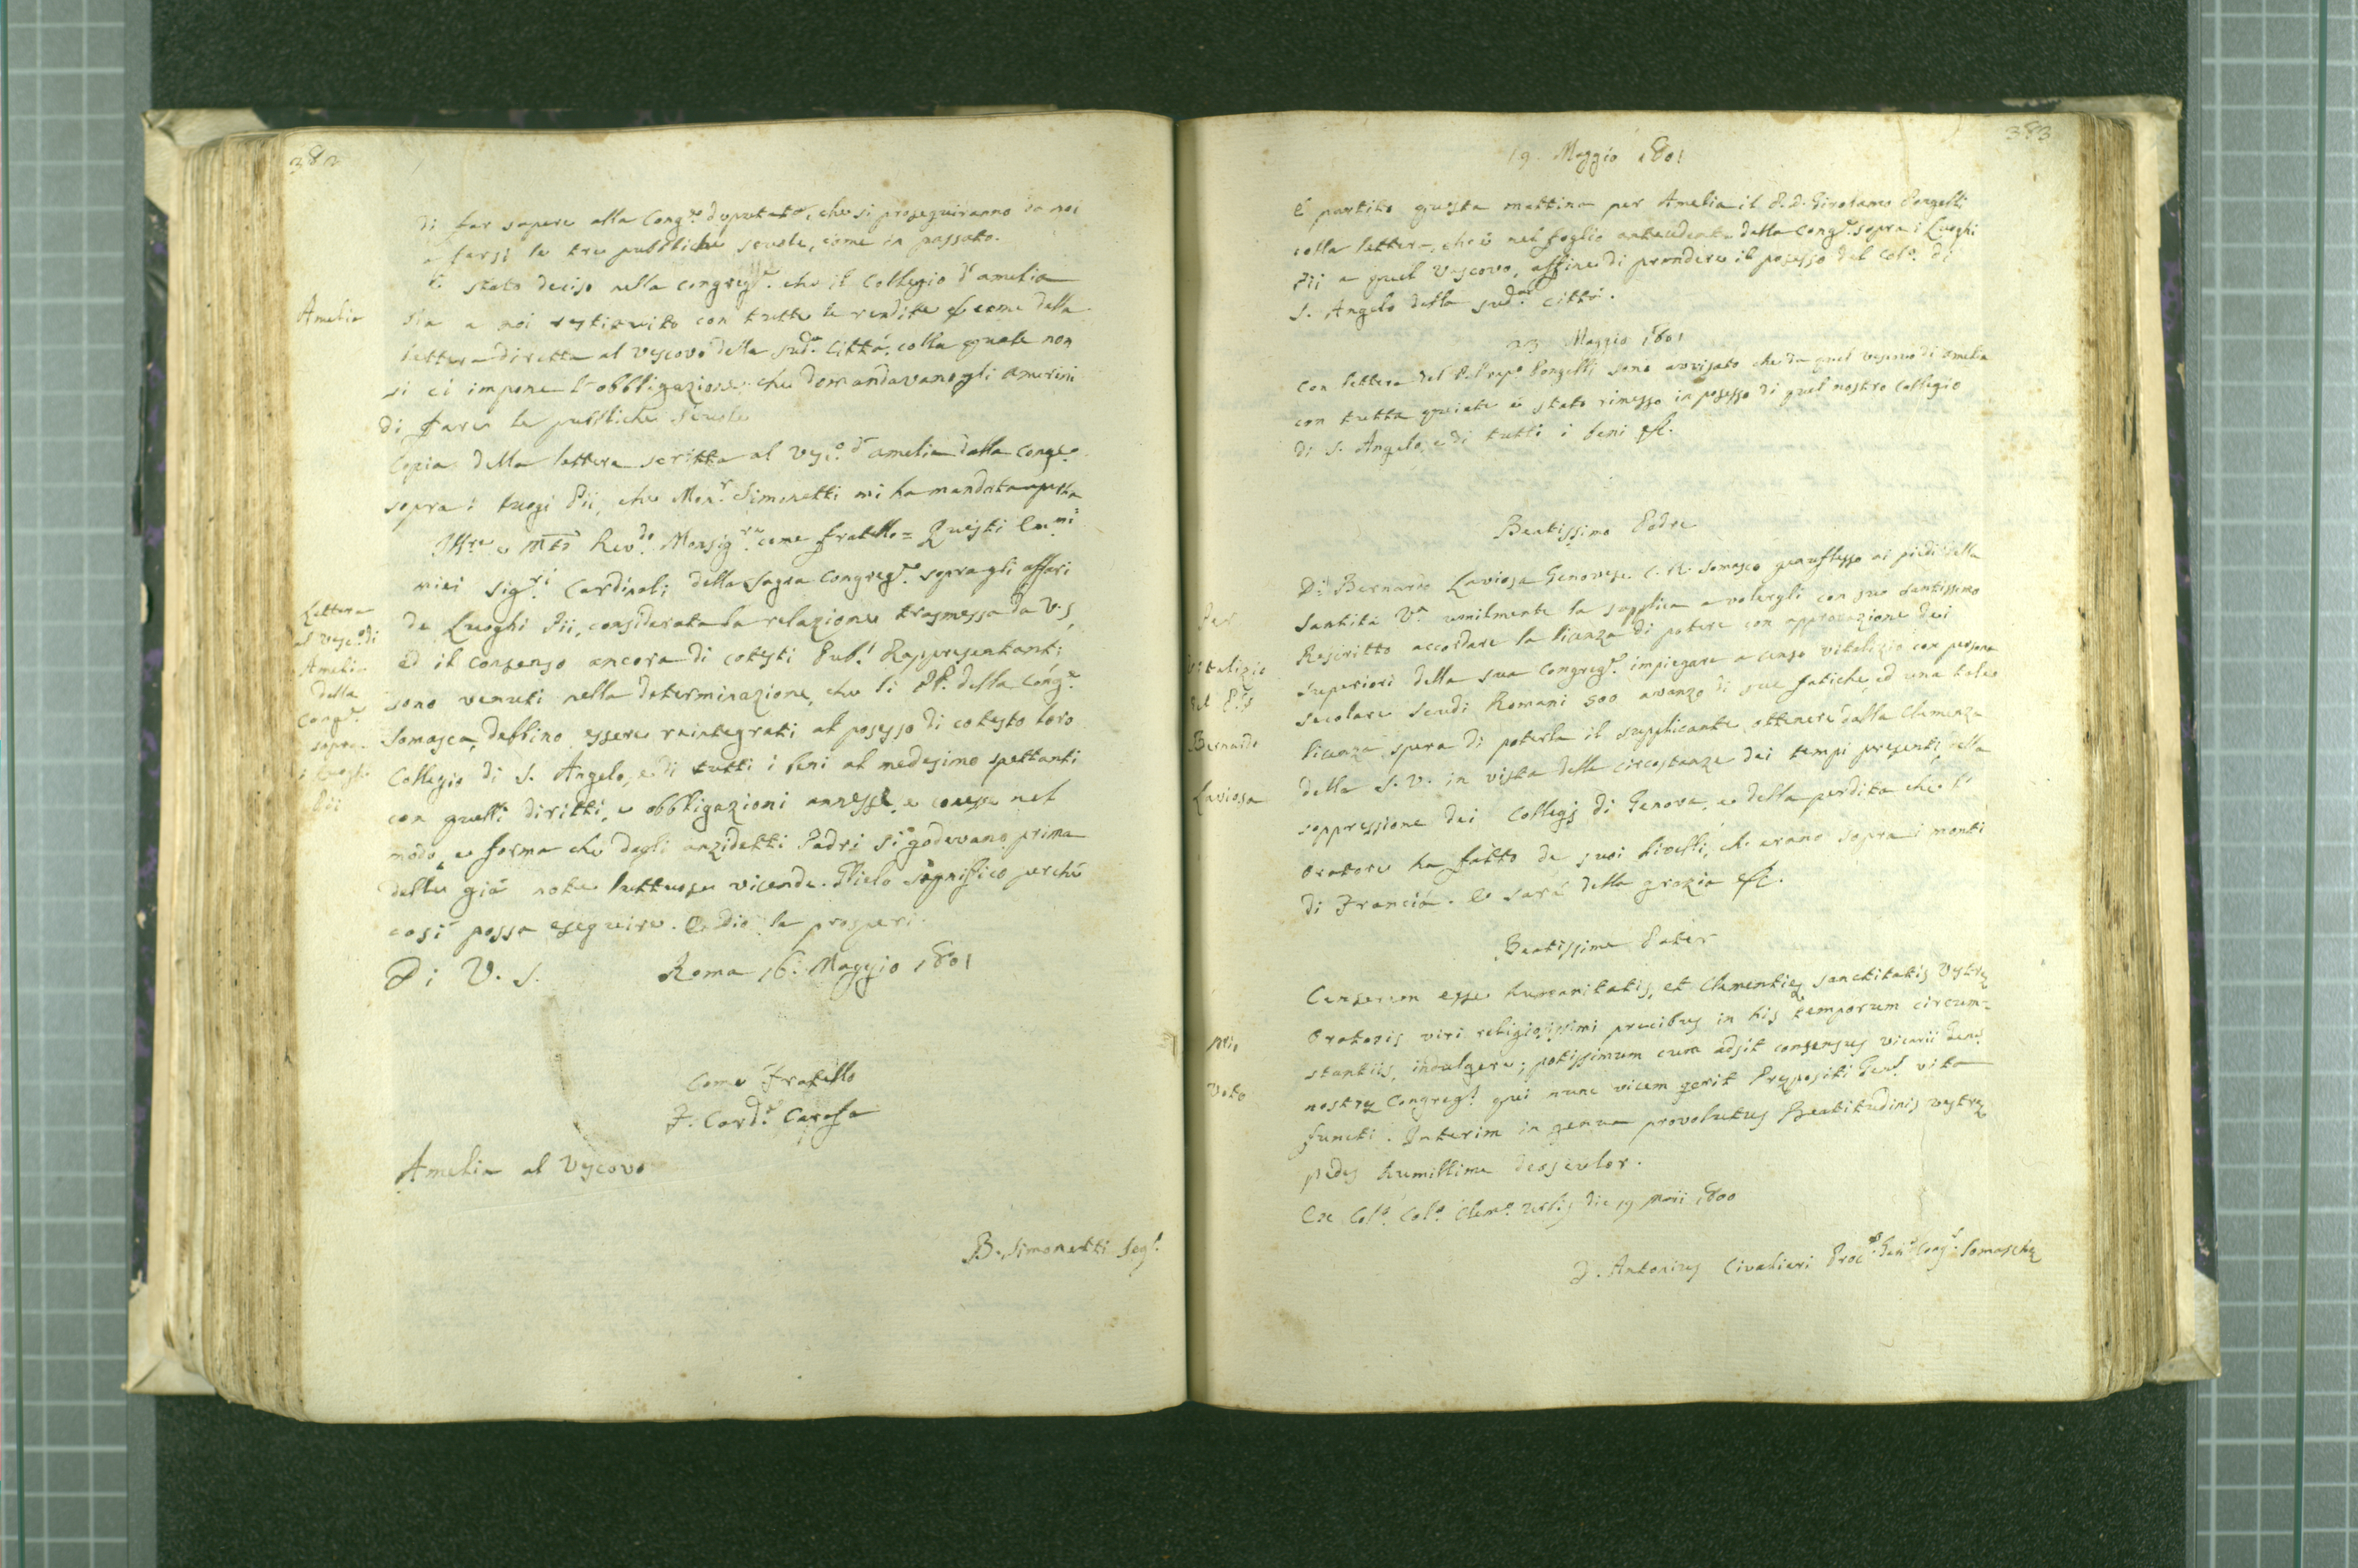 382
di far sapere alla Cong.e deputata, che si proseguiranno da noi
a farsi le tre pubbliche scuole, come in passato.
È stato deciso nella congreg.e che il Collegio d'amelia
Amelia
sia a noi restituito con tutte le rendite come dalla
lettera diretta al Vescovo della sud.a Città, colla quale non
si ci impone l'obbligazione che domandavano gli Amerini
di fare le pubbliche scuole
Copia della lettera scritta al Vesc.o d'amelia dalla Cong.e
sopra i luogi Pii, che Mon.r Simonetti mi ha mandata aperta
Ill.re e Mto Rev.do Monsig.re come fratello = Questi Em.mi
miei Sig.ri Cardinali della Sagra Congreg.e sopra gli affari
de Luoghi Pii, considerata la relazione trasmessa da V.S,
ed il consenso ancora di cotesti Pub.i Rappresentanti
sono venuti nella determinazione, che li PP. della Cong.e
Somasca, debbino essere reintegrati al possesso di cotesto loro
Collegio di S. Angelo, e di tutti i beni al medesimo spettanti
con quelli diritti, e obbligazioni annesse, e nel
modo, e forma che dagli anzidetti Padri si godevano prima
delle già note luttuose vicende. Glielo significo perché
così possa eseguire. E Dio la prosperi.
Lettera
al Vesc.o di
Amelia
della
Cong.e
sopra
i Luoghi
Pii
Di V. S. Roma 16. Maggio 1801
Come Fratello
F. Card.e Carafa
Amelia al Vescovo
B. Simonetti Seg.o
383
19. Maggio 1801
È partito questa mattina per Amelia il P.D. Girolamo Pongelli
colla lettera, che è nel foglio antecedente della Cong.e sopra i Luoghi
Pii a quel Vescovo, affine di prendere il possesso del Col.o di
S. Angelo della sud.a città.
23 Maggio 1801
Con lettera del P. Prep.o Pongelli sono avvisato che da quel vescovo di Amelia
con tutta quiete è stato rimesso in possesso di quel nostro Collegio
di S. Angelo, e di tutti i beni &c.
Beatissimo Padre
Per
Vitalizio
del P.
Bernardo
Laviosa
D. Bernardo Laviosa Genovese C.R. Somasco genuflesso ai piedi della
Santità V.a umilmente la supplica a volergli con suo Santissimo
Rescritto accordare la licenza di potere con approvazione dei
superiori della sua Congreg.e impiegare a censo vitalizio con persona
secolare scudi Romani 500 avanzo di sue fatiche, ed una tale
licenza spera di poterla il supplicante ottenere dalla Clemenza
della S.V. in vista delle circostanze dei tempi presenti, nella
soppressione dei Collegj di Genova, e della perdita che l'
oratore ha fatto de suoi livelli, ch'erano sopra i monti
di Francia. E sarà della grazia &c.
Beatissime Pater
Mio
Voto
Censerem esse humanitatis, et Clementię Sanctitatis Vestrę
Oratoris viri religiosissimi precibus in his temporum circum=
stantiis, indulgere; potissimum cum adsit consensus vicarii Gen.s
nostrę Congreg.s qui nunc vicem gerit Prępositi Gen.s vita
functi. Interim in genua provolutus Beatitudinis vestrę
pedes humillime deosculor.
Ex Col.o Clem.o Urbis die 19 maii 1800
D. Antonius Civalieri Proc.r Gen.s Cong.s Somaschę